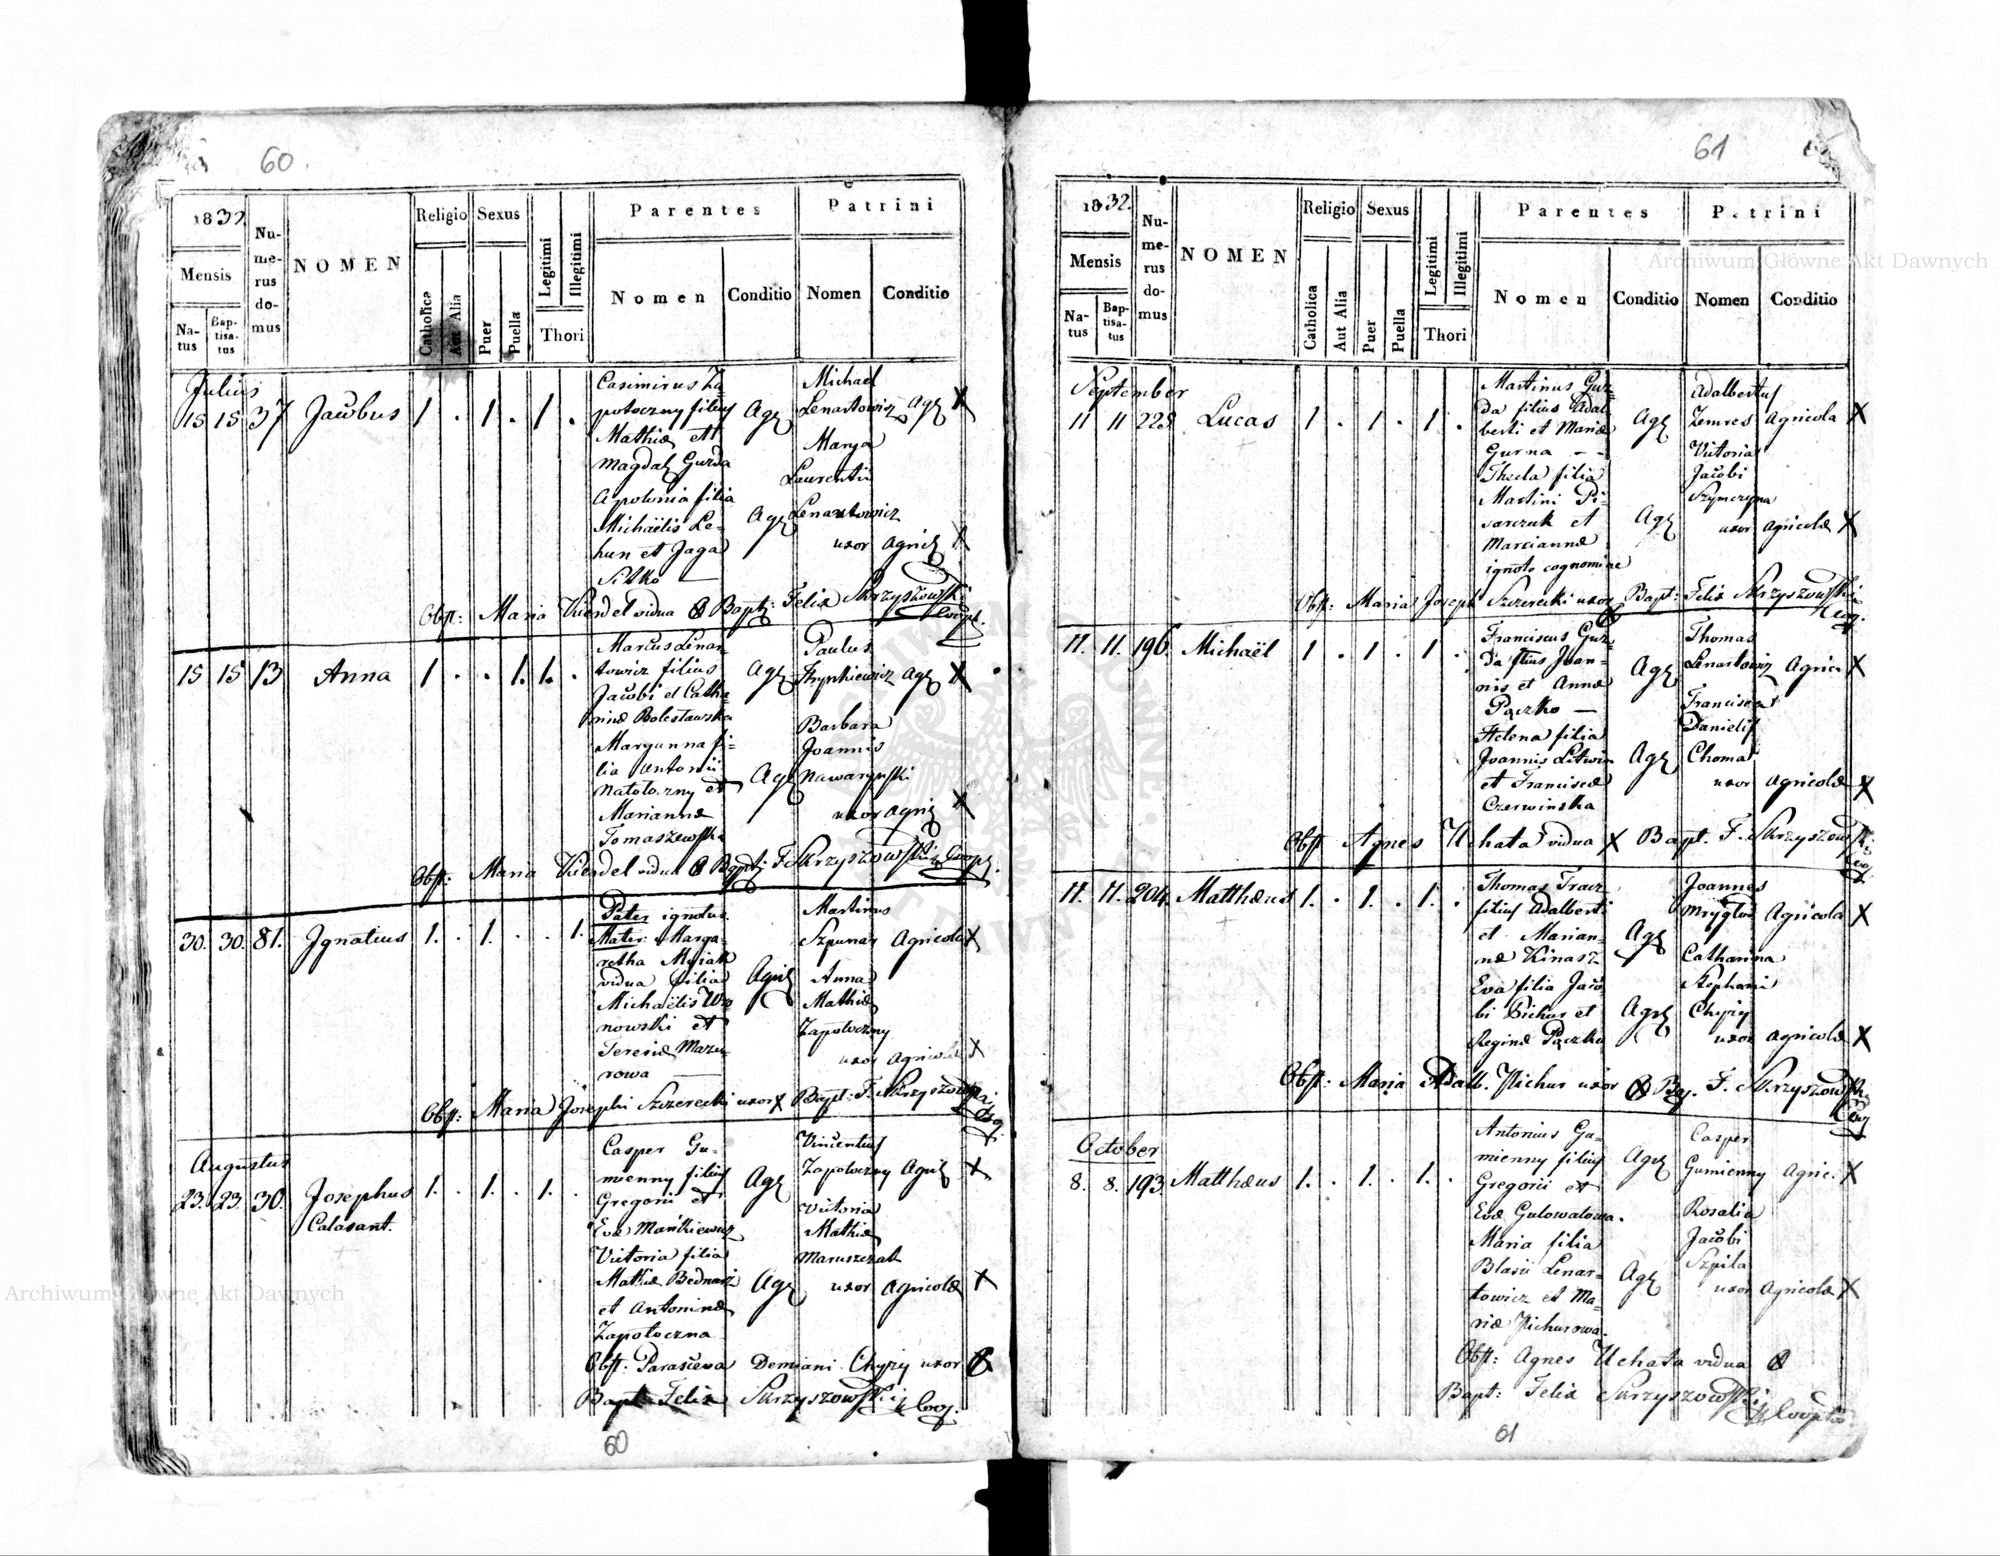 60.
1832.
Mensis
Na-
tus
Bap-
tisa-
tus
Nu-
me-
rus
do-
mus
NOMEN
Religio
Catholica
Aut Alia
Sexus
Puer
Puella
Legitimi
Illegitimi
Thori
Parentes
Nomen
Conditio
Patrini
Nomen
Conditio
Julius
15 15 37 Jacobus 1 . 1 . 1 .
Casimirus Za
potoczny filius
Mathiæ et
Magdal Gurda
Agr
Apolonia filia
Michaëlis Le-
hun et Jaga
Sitko —
Agr
Michael
Lenartowicz Agr X
Marya
Laurentii
Lenartowicz
uxor Agric X
Obst: Maria Kiendel vidua Bapt: Felix Skrzyszowski
Coop.
15 15 13 Anna 1 . . 1. 1. .
Marcus Lenar
towicz filius
Jacobi et Catha
rinæ Bolestawska
Agr
Maryanna fi-
lia Antonii
Natotoczny et
Mariannæ
Tomaszewska
Agr
Paulus
Hrynkiewicz Agr X
Barbara
Joannis
Nawaryński
uxor Agric X
Obst: Maria Kiendel vidua Bapt: F. Skrzyszowski Coop.
30. 30. 81. Jgnatius 1. . 1. . . 1.
Pater ignotus
Mater: Marga-
retha Mysiak
vidua filia
Michaëlis Wo
nowski et
Teresiæ Mazu-
rowa —
Agric
Martinus
Szpunar Agricola X
Anna
Mathiæ
Zapotoczny
uxor Agricolæ X
Obst: Maria Josephi Szczerecki uxor X Bapt: F. Skrzyszowski
Coop.
Augustus
23. 23. 30. Josephus 1. . 1. . 1. .
Calasant.
Casper Gu-
mienny filius
Gregorii et
Evæ Mańkiewicz
Agr
Victoria filia
Mathiæ Bednarz
et Antoninæ
Zapotoczna
Agr
Vincentius
Zapotoczny Agric X
Victoria
Mathiæ
Maruszczak
uxor Agricolæ X
Obst: Parascева Demiani Chyży uxor
Bapt Felix Skrzyszowski Coop.
60
61
1832.
Mensis
Na-
tus
Bap-
tisa-
tus
Nu-
me-
rus
do-
mus
NOMEN
Religio
Catholica
Aut Alia
Sexus
Puer
Puella
Legitimi
Illegitimi
Thori
Parentes
Nomen
Conditio
Patrini
Nomen
Conditio
September
11 11 228 Lucas 1 . 1 . 1 .
Martinus Gur-
da filius Adal
berti et Mariæ
Gurna - -
Agr
Thecla filia
Martini Pi-
sarczuk et
Mariannæ
ignoto cognomine
Agr
Adalbertus
Zemres Agricola X
Victoria
Jacobi
Szymczyna
uxor Agricolæ X
Obst: Maria Joseph Szczerecki uxor Bapt: Felix Skrzyszowski
Coop.
11. 11. 196. Michaël 1 . 1 . 1 .
Franciscus Gur-
da filius Joan-
nis et Annæ
Pączko —
Agr
Helena filia
Joannis Litwin
et Franciscæ
Czerwińska
Agr
Thomas
Lenartowicz Agric. X
Francisca
Danielis
Choma
uxor Agricolæ X
Obst Agnes Uchata vidua X Bapt. F. Skrzyszowski
Coop
11. 11. 204. Matthæus 1. . 1. . 1. .
Thomas Tracz
filius Adalberti
et Marian-
næ Kinasz
Agr
Eva filia Jaco-
bi Pichur et
Reginæ Pączko
Agr
Joannes
Mrygłod Agricola X
Catharina
Stephani
Chyży
uxor Agricolæ X
Obst: Maria Adalb. Pichur uxor Bap. F. Skrzyszowski
Coop
October
8. 8. 193. Matthæus 1. . 1. . 1. .
Antonius Gu-
mienny filius
Gregorii et
Evæ Gutowatowa.
Agr
Maria filia
Blasii Lenar-
towicz et Ma-
riæ Pichurowa.
Agr
Casper
Gumienny Agric. X
Rosalia
Jacobi
Szpila
uxor Agricolæ X
Obst: Agnes Uchata vidua
Bapt: Felix Skrzyszowski Cooptor
61
Archiwum Główne Akt Dawnych
Archiwum Główne Akt Dawnych